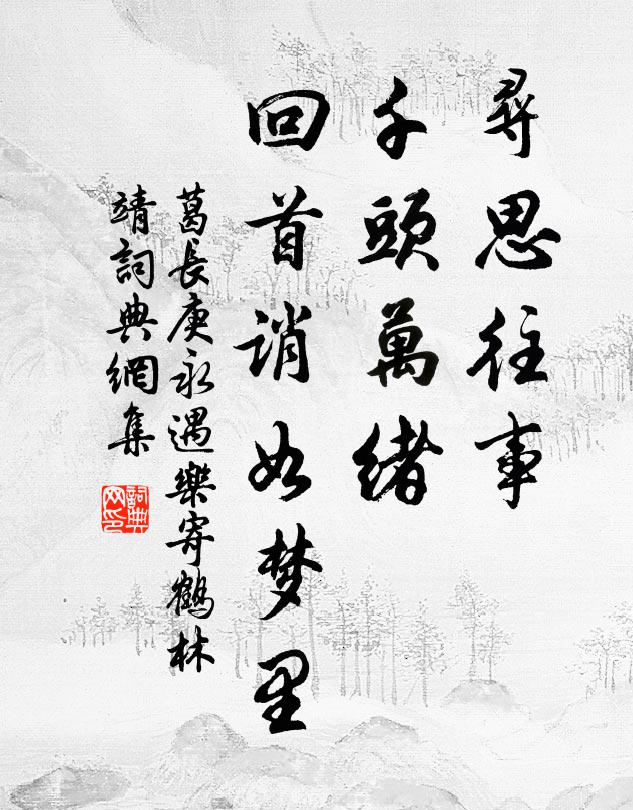 尋思往事
千頭萬緒
回首誚如梦里
葛長庚永遇樂寄鶴林
靖詞典網集
詞典网印